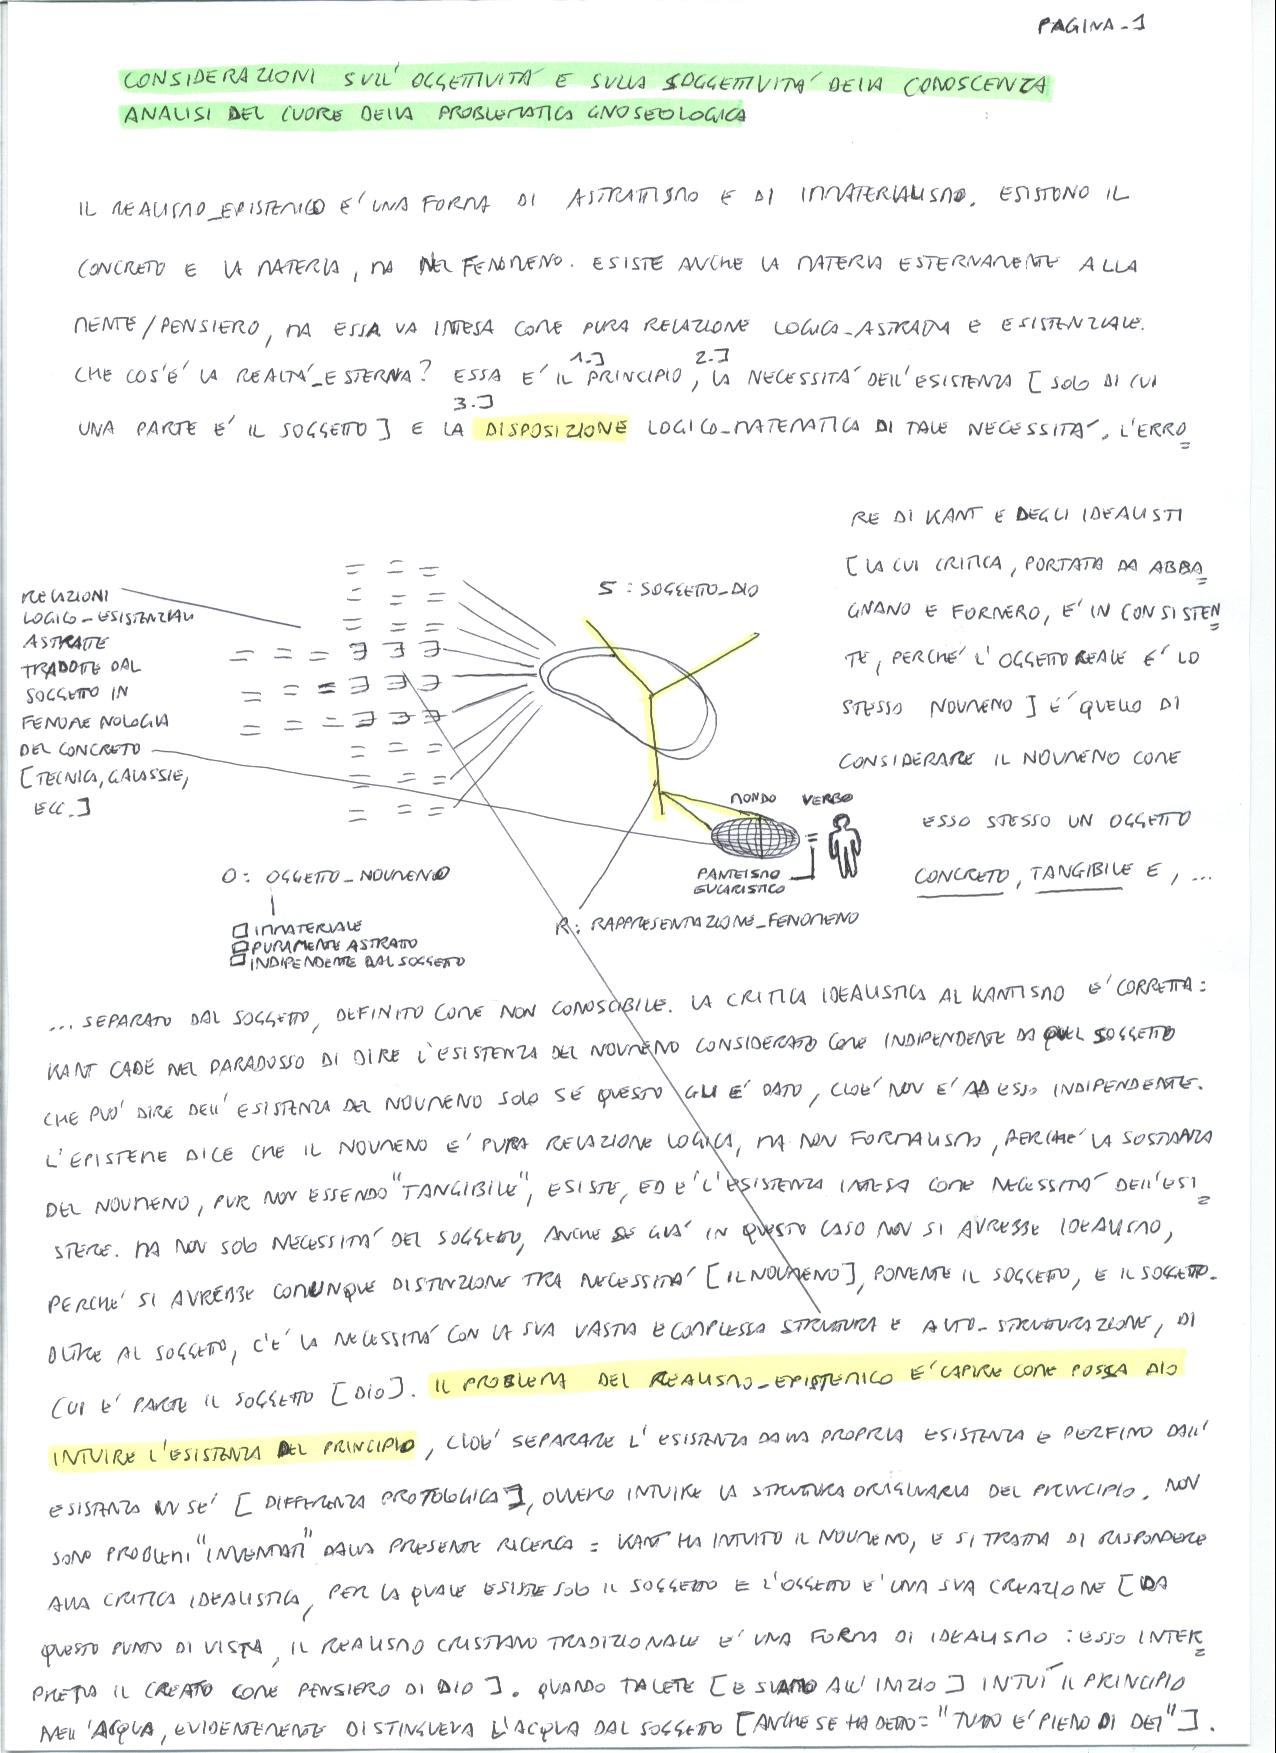 PAGINA_1
CONSIDERAZIONI SULL'OGGETTIVITA' E SULLA SOGGETTIVITA' DELLA CONOSCENZA
ANALISI DEL CUORE DELLA PROBLEMATICA GNOSEOLOGICA
IL REALISMO_EPISTEMICO E' UNA FORMA DI ASTRATTISMO E DI IMMATERIALISMO. ESISTONO IL
CONCRETO E LA MATERIA, MA NEL FENOMENO. ESISTE ANCHE LA MATERIA ESTERNAMENTE ALLA
MENTE/PENSIERO, MA ESSA VA INTESA COME PURA RELAZIONE LOGICA_ASTRATTA E ESISTENZIALE.
CHE COS'E' LA REALTA'_ESTERNA? ESSA E' IL 1.] PRINCIPIO, 2.] LA NECESSITA' DELL'ESISTENZA [SOLO DI CUI
UNA PARTE E' IL SOGGETTO] E LA 3.] DISPOSIZIONE LOGICO_MATEMATICA DI TALE NECESSITA'. L'ERRO=
RE DI KANT E DEGLI IDEALISTI
[LA CUI CRITICA, PORTATA DA ABBA=
GNANO E FORNERO, E' INCONSISTEN=
TE, PERCHE' L'OGGETTO REALE E' LO
STESSO NOUMENO] E' QUELLO DI
CONSIDERARE IL NOUMENO COME
ESSO STESSO UN OGGETTO
CONCRETO, TANGIBILE E, ...
RELAZIONI
LOGICO_ESISTENZIALI
ASTRATTE
TRADOTTE DAL
SOGGETTO IN
FENOMENOLOGIA
DEL CONCRETO
[TECNICA, GALASSIE,
ECC.]
= = =
= = =
= = =
= = = ∃ ∃ ∃
= = = ∃ ∃ ∃
= = = ∃ ∃ ∃
= = =
= = =
= = =
S: SOGGETTO_DIO
MONDO VERBO
=
PANTEISMO
EUCARISTICO
O: OGGETTO_NOUMENO
IMMATERIALE
PURAMENTE ASTRATTO
INDIPENDENTE DAL SOGGETTO
R: RAPPRESENTAZIONE_FENOMENO
... SEPARATO DAL SOGGETTO, DEFINITO COME NON CONOSCIBILE. LA CRITICA IDEALISTICA AL KANTISMO E' CORRETTA:
KANT CADE NEL PARADOSSO DI DIRE L'ESISTENZA DEL NOUMENO CONSIDERATO COME INDIPENDENTE DA QUEL SOGGETTO
CHE PUO' DIRE DELL'ESISTENZA DEL NOUMENO SOLO SE QUESTO GLI E' DATO, CIOE' NON E' AD ESSO INDIPENDENTE.
L'EPISTEME DICE CHE IL NOUMENO E' PURA RELAZIONE LOGICA, MA NON FORMALISMO, PERCHE' LA SOSTANZA
DEL NOUMENO, PUR NON ESSENDO "TANGIBILE", ESISTE, ED E' L'ESISTENZA INTESA COME NECESSITA' DELL'ESI=
STERE. MA NON SOLO NECESSITA' DEL SOGGETTO, ANCHE SE GIA' IN QUESTO CASO NON SI AVREBBE IDEALISMO,
PERCHE' SI AVREBBE COMUNQUE DISTINZIONE TRA NECESSITA' [IL NOUMENO], PONENTE IL SOGGETTO, E IL SOGGETTO.
OLTRE AL SOGGETTO, C'E' LA NECESSITA' CON LA SUA VASTA E COMPLESSA STRUTTURA E AUTO_STRUTTURAZIONE, DI
CUI E' PARTE IL SOGGETTO [DIO]. IL PROBLEMA DEL REALISMO_EPISTEMICO E' CAPIRE COME POSSA DIO
INTUIRE L'ESISTENZA DEL PRINCIPIO, CIOE' SEPARARE L'ESISTENZA DALLA PROPRIA ESISTENZA E PERFINO DALL'
ESISTENZA IN SE' [DIFFERENZA PROTOLOGICA], OVVERO INTUIRE LA STRUTTURA ORIGINARIA DEL PRINCIPIO. NON
SONO PROBLEMI "INVENTATI" DALLA PRESENTE RICERCA = KANT HA INTUITO IL NOUMENO, E SI TRATTA DI RISPONDERE
ALLA CRITICA IDEALISTICA, PER LA QUALE ESISTE SOLO IL SOGGETTO E L'OGGETTO E' UNA SUA CREAZIONE [DA
QUESTO PUNTO DI VISTA, IL REALISMO CRISTIANO TRADIZIONALE E' UNA FORMA DI IDEALISMO: ESSO INTER=
PRETA IL CREATO COME PENSIERO DI DIO]. QUANDO TALETE [E SIAMO ALL'INIZIO] INTUI' IL PRINCIPIO
NELL'ACQUA, EVIDENTEMENTE DISTINGUEVA L'ACQUA DAL SOGGETTO [ANCHE SE HA DETTO = "TUTTO E' PIENO DI DEI"].